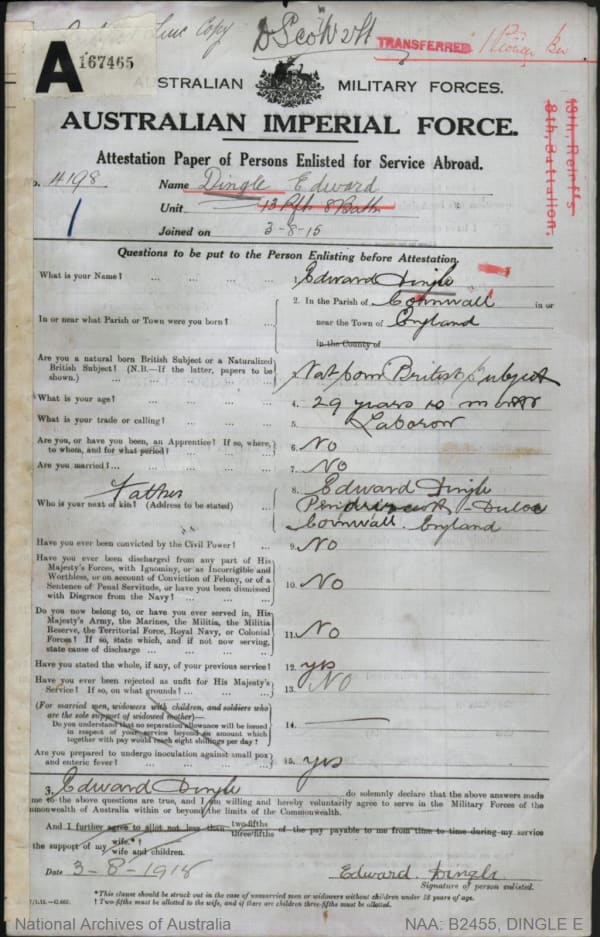 Copy
TRANSFERRED
A 167465
AUSTRALIAN MILITARY FORCES.
AUSTRALIAN IMPERIAL FORCE.
13th, Reinf's
8th, Battalion.
Attestation Paper of Persons Enlisted for Service Abroad.
o. 4198 Name Dingle Edward
1 Unit 13 Rfts 8 Battn
Joined on 3-8-15
Questions to be put to the Person Enlisting before Attestation.
What is your Name? ... ... ... ... 1. Edward Dingle
2. In the Parish of Cornwall in or
In or near what Parish or Town were you born? ... near the Town of England
in the County of
Are you a natural born British Subject or a Naturalized
British Subject? (N.B.—If the latter, papers to be
shown.) ... ... ... ... Nat born British Subject
What is your age? ... ... ... ... 4. 29 years 10 months
What is your trade or calling? ... ... ... 5. Laborour
Are you, or have you been, an Apprentice? If so, where,
to whom, and for what period? ... ... 6. No
Are you married? ... ... ... ... 7. No
Father 8. Edward Dingle
Who is your next of kin? (Address to be stated) ... - Duloe
Cornwall. England
Have you ever been convicted by the Civil Power? ... 9. No
Have you ever been discharged from any part of His
Majesty's Forces, with Ignominy, or as Incorrigible and
Worthless, or on account of Conviction of Felony, or of a
Sentence of Penal Servitude, or have you been dismissed
with Disgrace from the Navy? ... ... 10. No
Do you now belong to, or have you ever served in, His
Majesty's Army, the Marines, the Militia, the Militia
Reserve, the Territorial Force, Royal Navy, or Colonial
Forces? If so, state which, and if not now serving,
state cause of discharge ... ... ... 11. No
Have you stated the whole, if any, of your previous service? 12. yes
Have you ever been rejected as unfit for His Majesty's
Service? If so, on what grounds? ... ... 13. No
(For married men, widowers with children, and soldiers who
are the sole support of widowed mother)—
Do you understand that no separation allowance will be issued
in respect of your service beyond an amount which
together with pay would reach eight shillings per day? 14. —
Are you prepared to undergo inoculation against small pox
and enteric fever? ... ... ... 15. yes
3. Edward Dingle do solemnly declare that the above answers made
me to the above questions are true, and I am willing and hereby voluntarily agree to serve in the Military Forces of the
mmonwealth of Australia within or beyond the limits of the Commonwealth.
And I further agree to allot not less than two-fifths three-fifths of the pay payable to me from time to time during my service
the support of my wife.*† wife and children.
Date 3-8-1915 Edward Dingle
Signature of person enlisted.
*This clause should be struck out in the case of unmarried men or widowers without children under 18 years of age.
† Two-fifths must be allotted to the wife, and if there are children three-fifths must be allotted.
National Archives of Australia NAA: B2455, DINGLE E